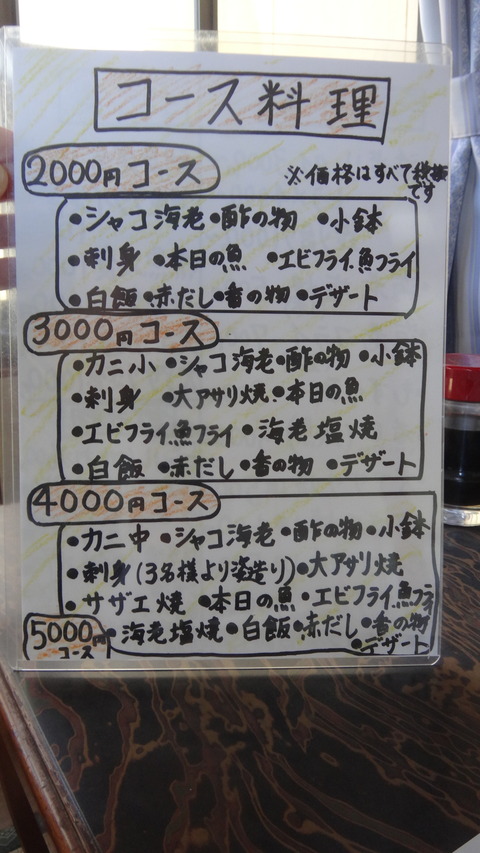 コース料理
2000円コース
※価格はすべて税抜
です
•シャコ海老•酢の物 •小鉢
•刺身 •本日の魚 •エビフライ.魚フライ
•白飯•赤だし•香の物•デザート
3000円コース
•カニ小 •シャコ海老•酢の物•小鉢
•刺身 •大アサリ焼.•本日の魚
•エビフライ.魚フライ •海老塩焼
•白飯 •赤だし•香の物 •デザート
4000円コース
•カニ中 •シャコ海老•酢の物•小鉢
•刺身(3名様より姿造り)•大アサリ焼
•サザエ焼 •本日の魚•エビフライ.魚フライ
•海老塩焼•白飯•赤だし•香の物
•デザート
5000円
コース